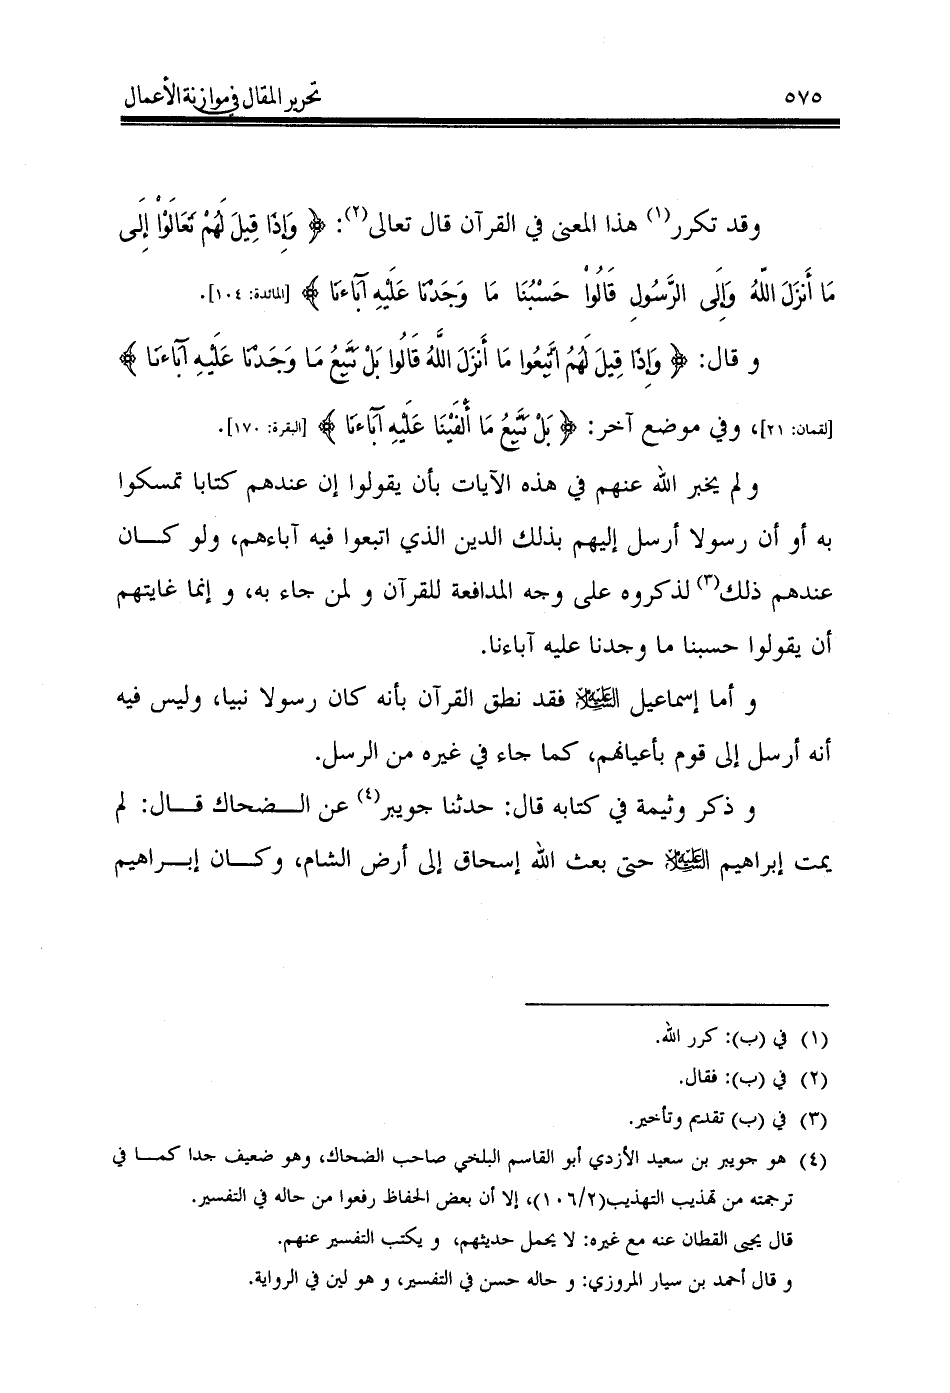 ٥٧٥ تحرير المقال في موازنة الأعمال
وقد تكرر(١) هذا المعنى في القرآن قال تعالى(٢): ﴿ وَإِذَا قِيلَ لَهُمْ تَعَالَوْا إِلَى
مَا أَنزَلَ اللَّهُ وَإِلَى الرَّسُولِ قَالُوا حَسْبُنَا مَا وَجَدْنَا عَلَيْهِ آبَاءَنَا ﴾ [المائدة: ١٠٤].
و قال: ﴿ وَإِذَا قِيلَ لَهُمُ اتَّبِعُوا مَا أَنزَلَ اللَّهُ قَالُوا بَلْ نَتَّبِعُ مَا وَجَدْنَا عَلَيْهِ آبَاءَنَا ﴾
[لقمان: ٢١]، وفي موضع آخر: ﴿ بَلْ نَتَّبِعُ مَا أَلْفَيْنَا عَلَيْهِ آبَاءَنَا ﴾ [البقرة: ١٧٠].
و لم يخبر الله عنهم في هذه الآيات بأن يقولوا إن عندهم كتابا تمسكوا
به أو أن رسولا أرسل إليهم بذلك الدين الذي اتبعوا فيه آباءهم، ولو كـــان
عندهم ذلك(٣) لذكروه على وجه المدافعة للقرآن و لمن جاء به، و إنما غايتهم
أن يقولوا حسبنا ما وجدنا عليه آباءنا.
و أما إسماعيل العَلَيْهِ السَّلام فقد نطق القرآن بأنه كان رسولا نبيا، وليس فيه
أنه أرسل إلى قوم بأعيانهم، كما جاء في غيره من الرسل.
و ذكر وثيمة في كتابه قال: حدثنا جويبر(٤) عن الـــضحاك قـــال: لم
يمت إبراهيم العَلَيْهِ السَّلام حتى بعث الله إسحاق إلى أرض الشام، وكـــان إبـــراهيم
(١) في (ب): كرر الله.
(٢) في (ب): فقال.
(٣) في (ب) تقديم وتأخير.
(٤) هو جويبر بن سعيد الأزدي أبو القاسم البلخي صاحب الضحاك، وهو ضعيف جدا كمـــا في
ترجمته من تهذيب التهذيب(١٠٦/٢)، إلا أن بعض الحفاظ رفعوا من حاله في التفسير.
قال يحيى القطان عنه مع غيره: لا يحمل حديثهم، و يكتب التفسير عنهم.
و قال أحمد بن سيار المروزي: و حاله حسن في التفسير، و هو لين في الرواية.